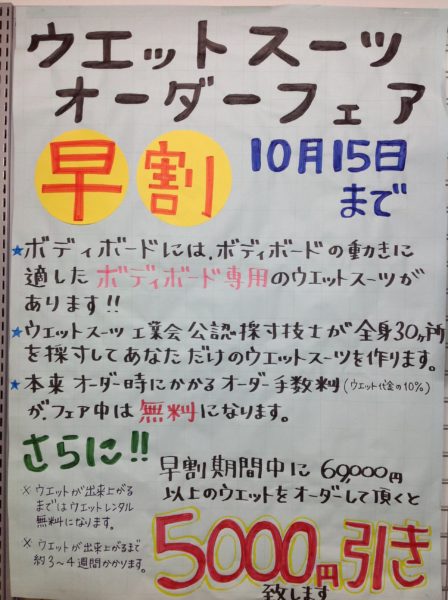 ウエットスーツ
オーダーフェア
早割
10月15日
まで
★ボディボードには、ボディボードの動きに
適したボディボード専用のウエットスーツが
あります!!
★ウェットスーツ工業会公認・採寸技士が全身30ヶ所
を採寸してあなただけのウエットスーツを作ります。
★本来オーダー時にかかるオーダー手数料(ウエット代金の10%)
が、フェア中は無料になります。
さらに!!
早割期間中に69,000円
以上のウエットをオーダして頂くと
5000円引き
致します
※ウエットが出来上がる
まではウエットレンタル
無料になります。
※ウエットが出来上がるまで
約3~4週間かかります。